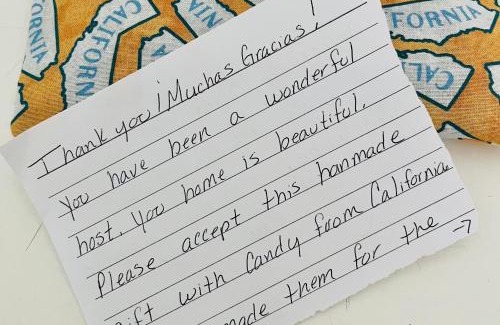 Thank you ¡Muchas Gracias!
You have been a wonderful
host. You home is beautiful.
Please accept this hanmade
gift with Candy from California
made them for the →
CALIFORNIA
FORNIA
CALI